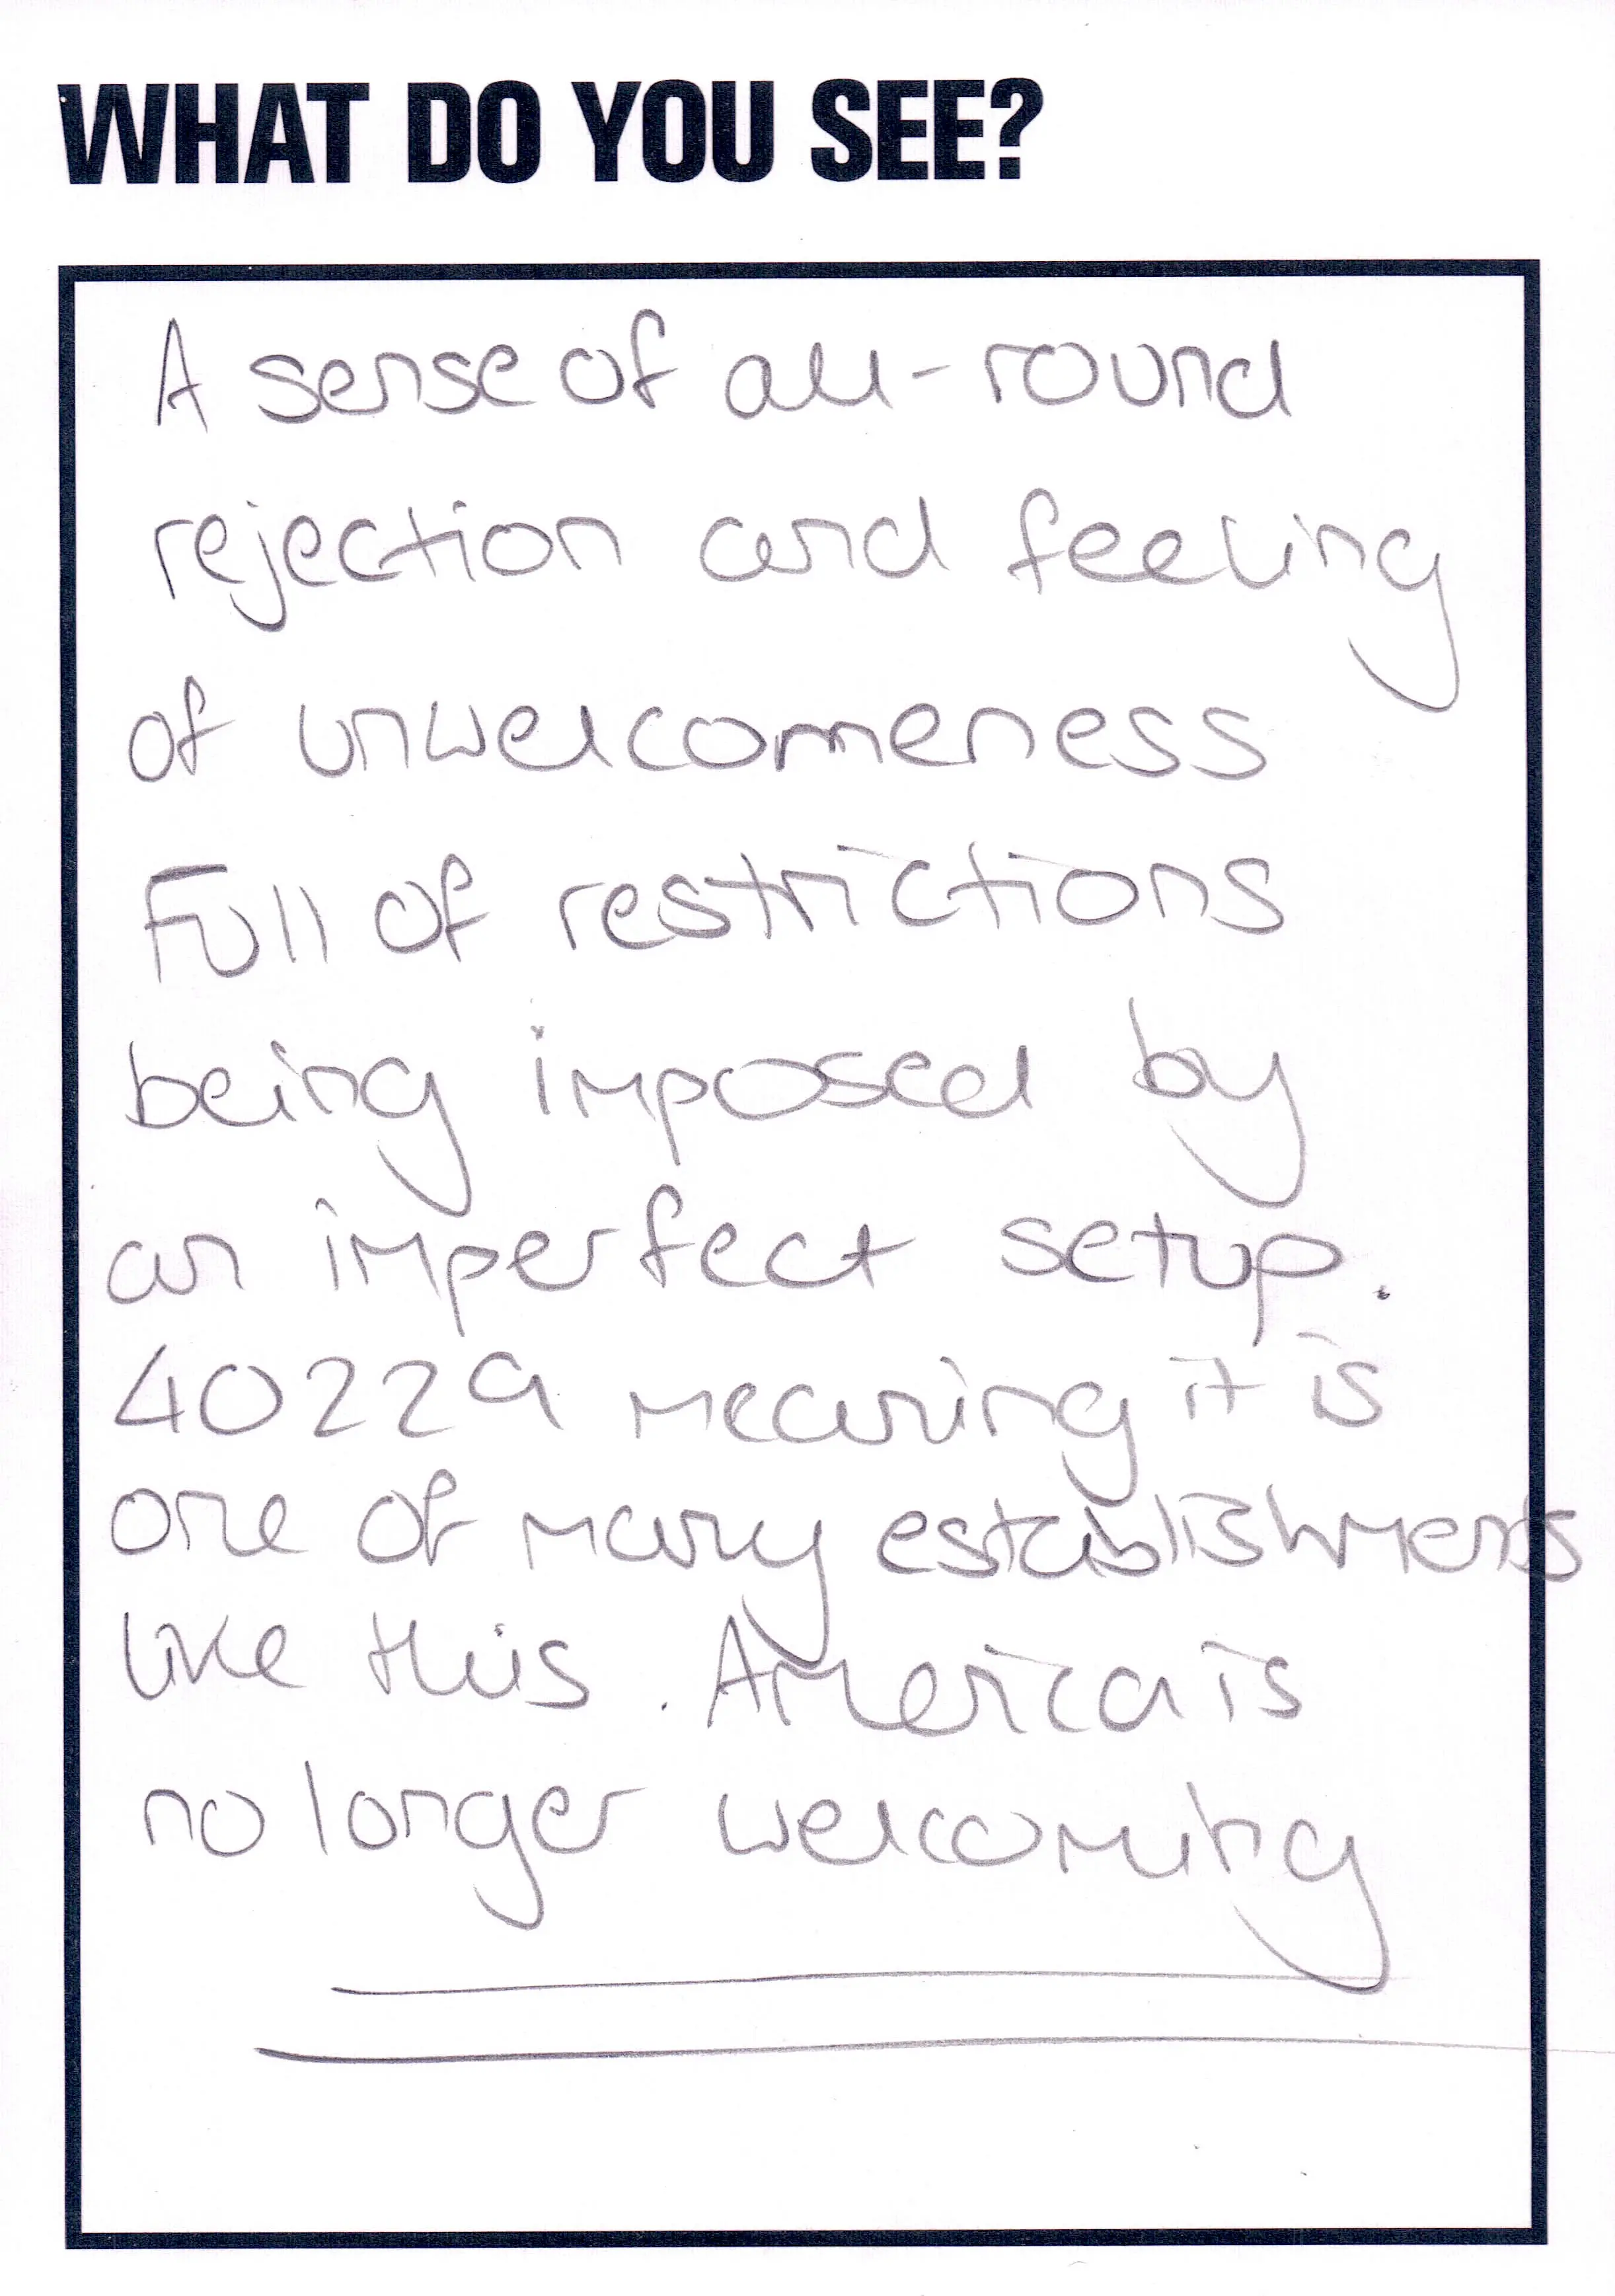 WHAT DO YOU SEE?
A sense of all-round
rejection and feeling
of unwelcomeness
Full of restrictions
being imposed by
an imperfect setup.
40229 meaning it is
one of many establishments
like this. America is
no longer welcoming